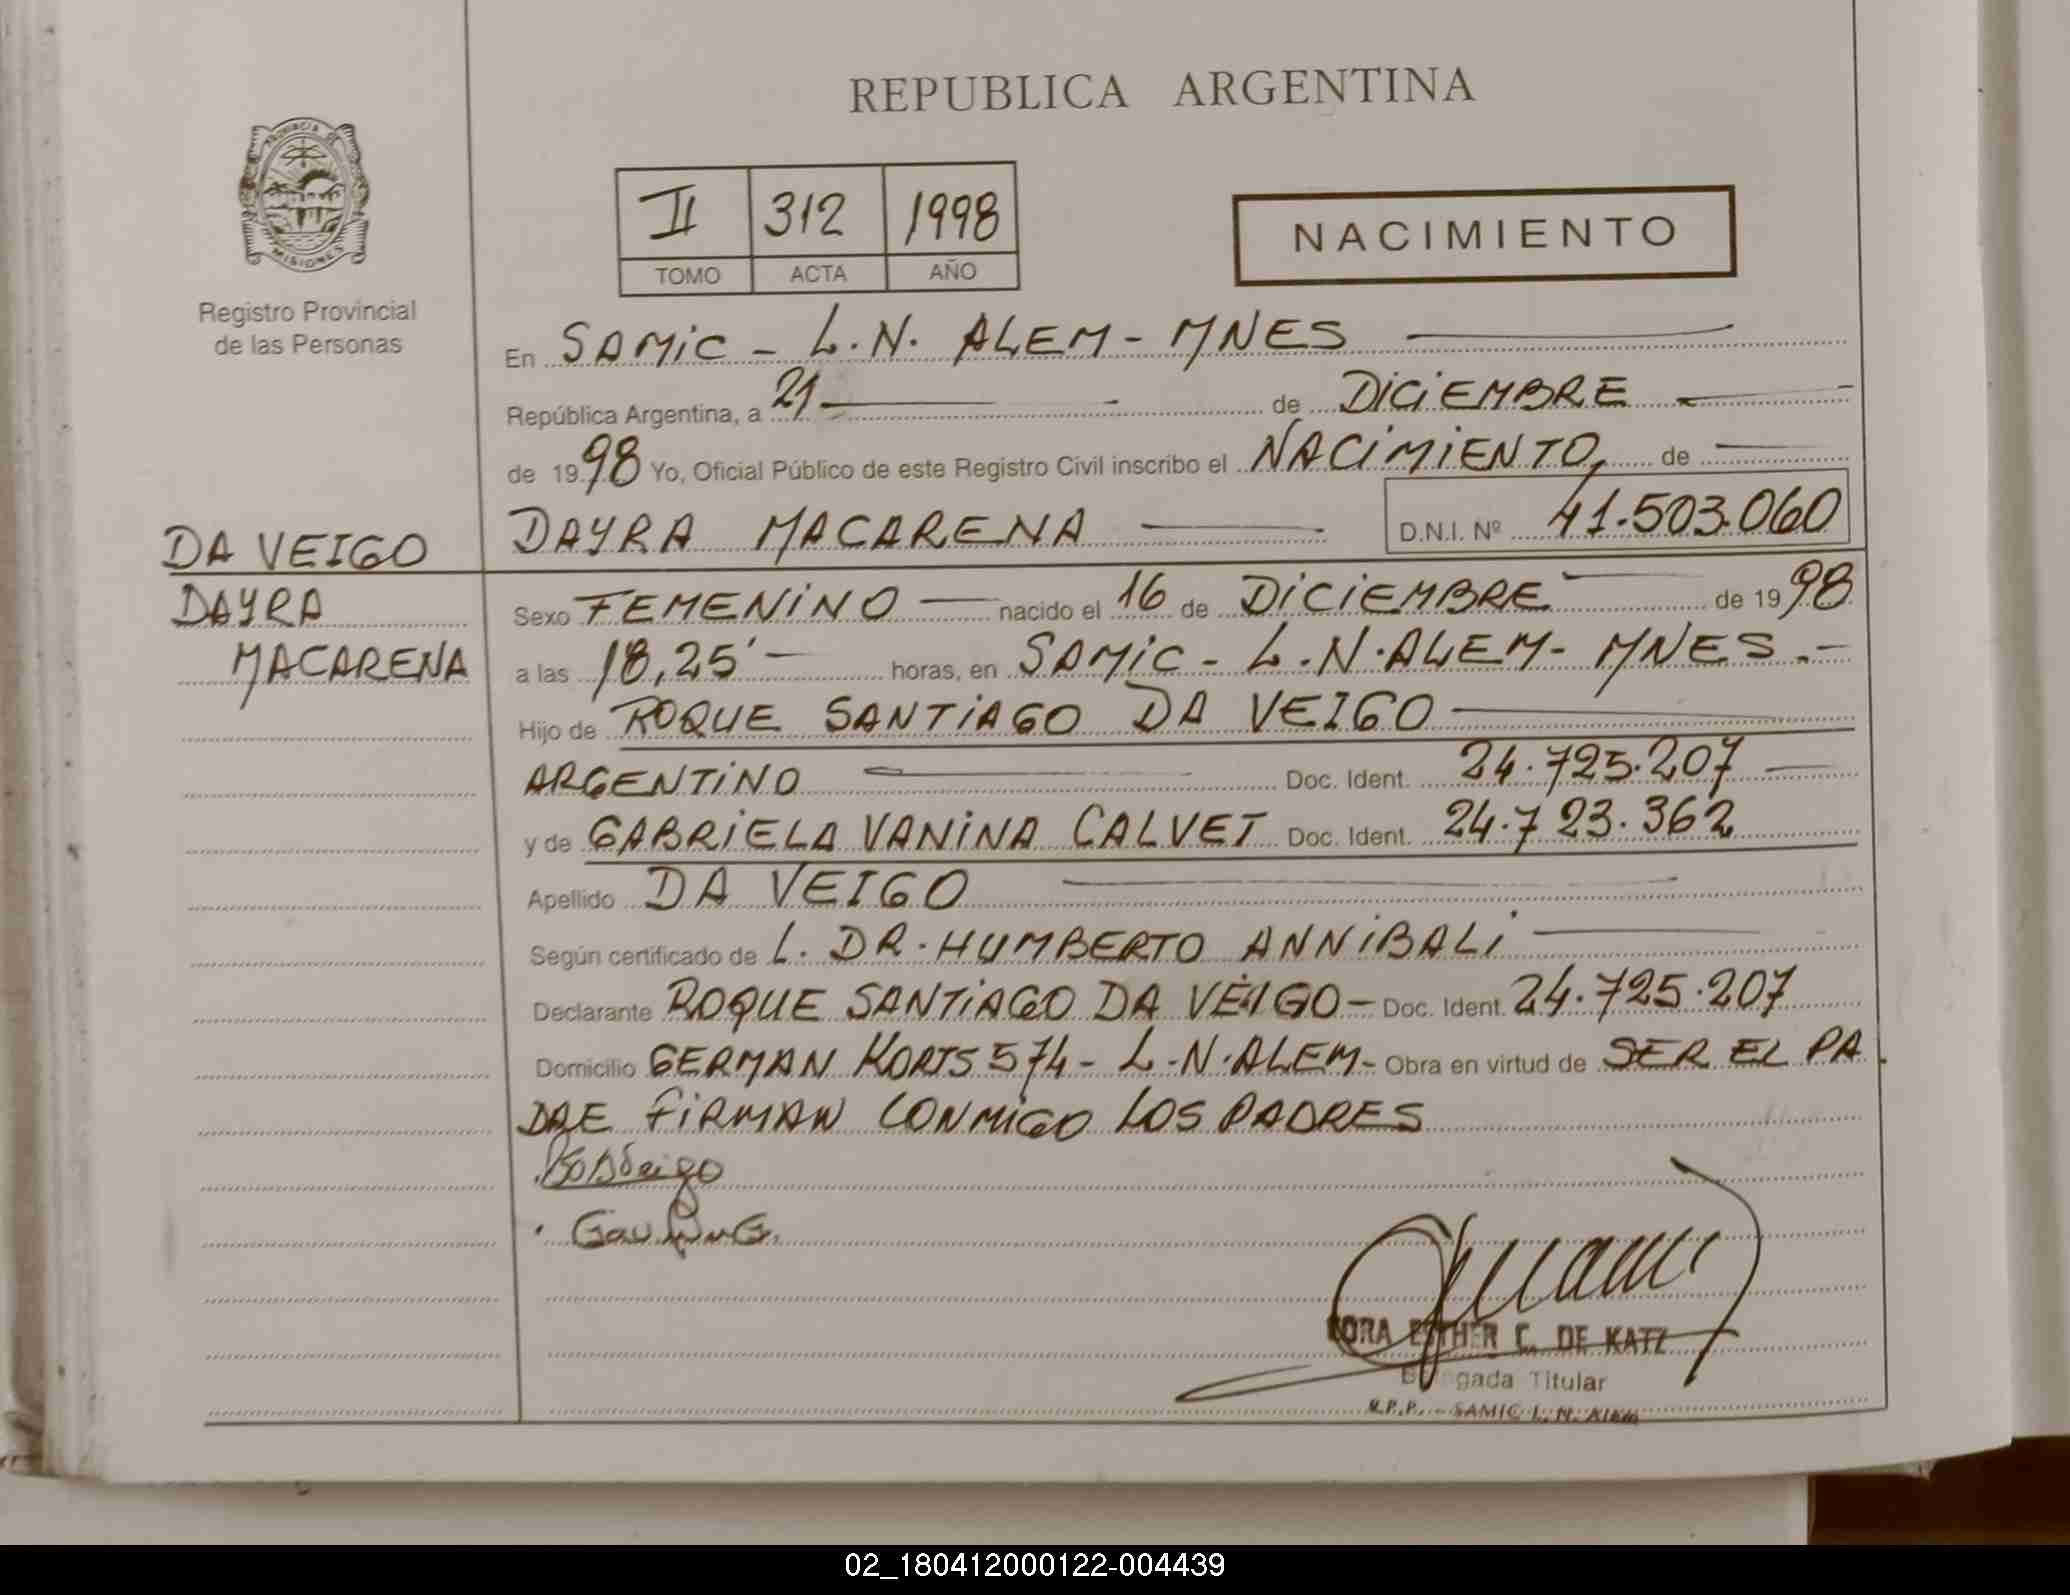 REPUBLICA ARGENTINA
PROVINCIA DE
MISIONES
Registro Provincial
de las Personas
II 312 1998
TOMO ACTA AÑO
NACIMIENTO
En SAMiC - L.N. ALEM - MNES
República Argentina, a 21 de DiCiEMBRE
de 1998 Yo, Oficial Público de este Registro Civil inscribo el NACiMiENTO, de
DAYRA MACARENA D.N.I. Nº 41.503.060
DA VEIGO
DAYRA
MACARENA
Sexo FEMENiNO nacido el 16 de DiCiEMBRE de 1998
a las 18,25' horas, en SAMiC - L.N.ALEM - MNES.-
Hijo de ROQUE SANTiAGO DA VEIGO
ARGENTiNO Doc. Ident. 24.725.207
y de GABRiELA VANiNA CALVET Doc. Ident. 24.723.362
Apellido DA VEIGO
Según certificado de L. DR. HUMBERTO ANNiBALi
Declarante ROQUE SANTiAGO DA VEIGO - Doc. Ident. 24.725.207
Domicilio GERMAN KORTS 574 - L.N.ALEM - Obra en virtud de SER EL PA
DRE FiRMAN CONMiGO LOS PADRES
ESTHER C. DE KATZ
Delegada Titular
R.P.P. - SAMIC L. N. Alem
02_180412000122-004439